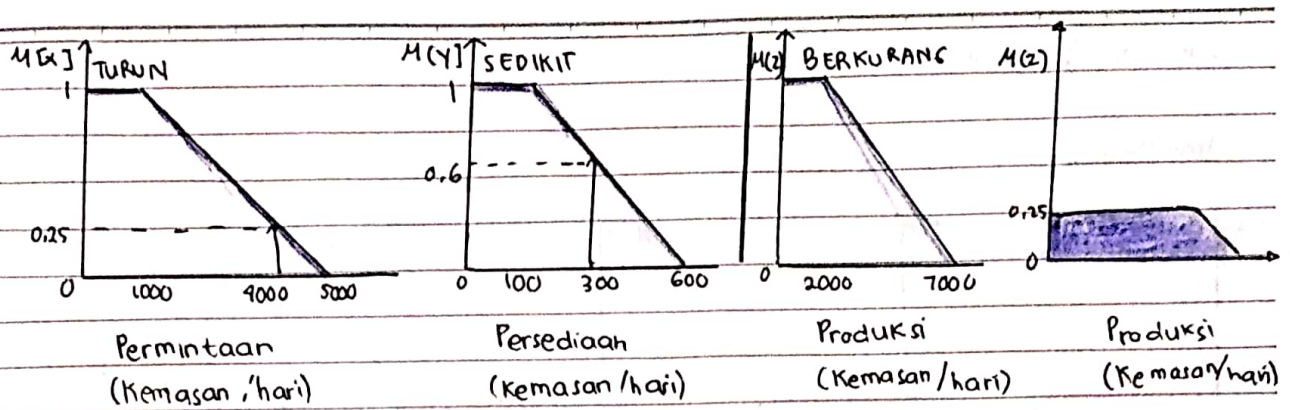 μ[x] TURUN
1
0,25
0 1000 4000 5000
Permintaan
(Kemasan /hari)
μ(y) SEDIKIT
1
0.6
0 100 300 600
Persediaan
(Kemasan /hari)
μ(z) BERKURANG
0 2000 7000
Produksi
(Kemasan /hari)
μ(z)
0,25
0
Produksi
(Kemasan/hari)